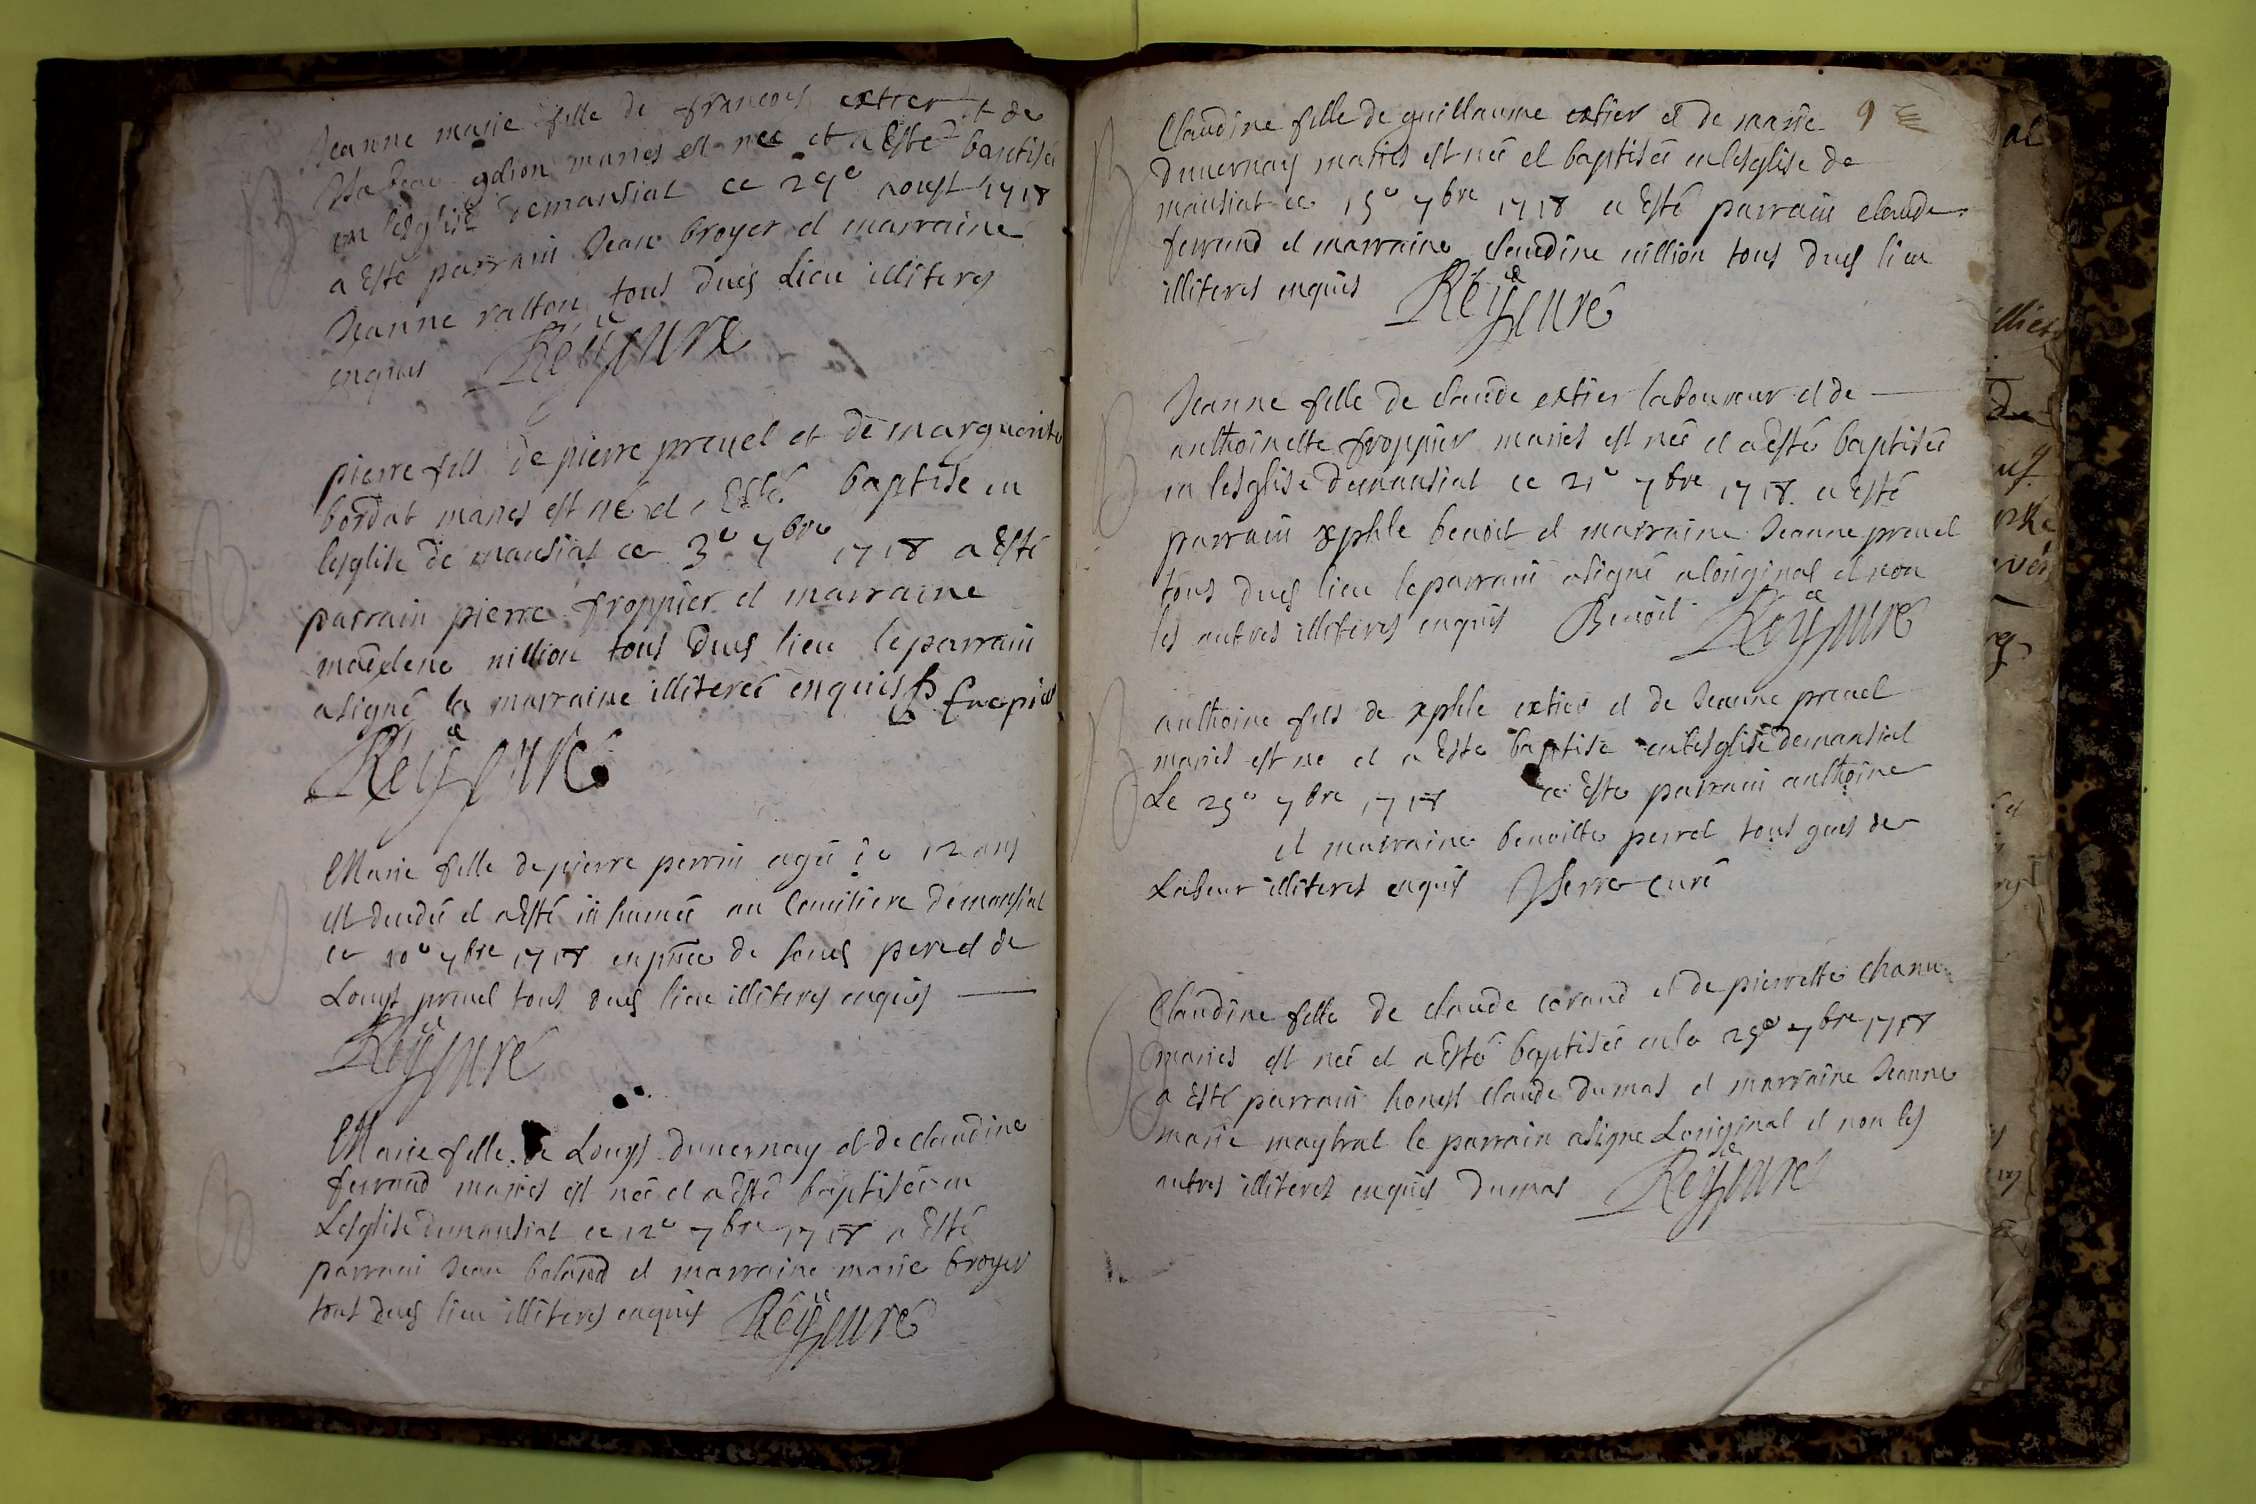 Jeanne marie fille de francois extier et de
Isabeau gdion mariés est née et a Esté baptisée
en lesglise demansiat ce 29e aoust 1718
a Esté parrain Jean broyer et marraine
Jeanne ratton tous dud lieu illiteres
enquis Reÿ curé
pierre fils de pierre preuel et de marguerite
bordat maries est né et a Esté baptise en
lesglise de mansiat ce 3e 7bre 1718 a Esté
parrain pierre froppier et marraine
madelene nillion tous dud lieu le parrain
a signé la marraine illiteree enquis
Reÿ curé
Marie fille de pierre perrin agée de 12 ans
est decedée et a Esté inhumée au Cemitiere demansiat
ce 10e 7bre 1718 en pnce de sond pere et de
Louys preuel tous dud lieu illiteres enquis
Reÿ curé
Marie fille de Louys duuernay et de claudine
ferrand mariés est née et a Esté baptisée en
Lesglise demansiat ce 12e 7bre 1718 a Esté
parrain Jean boland et marraine marie broyer
tous dud lieu illiteres enquis Reÿ curé
9
Claudine fille de guillaume extier et de marie
duuernay mariés est née et baptisée en lesglise de
mansiat ce 15e 7bre 1718 a Esté parrain claude
ferrand et marraine claudine nillion tous dud lieu
illiteres enquis Reÿ curé
Jeanne fille de claude extier laboureur et de
anthoinette froppier mariés est née et a Esté baptisée
en lesglise demansiat ce 21e 7bre 1718 a Esté
parrain xphle benoit et marraine Jeanne preuel
tous dud lieu le parrain a signé a loriginal et non
les autres illiteres enquis Benoit Reÿ curé
anthoine fils de xphle extier et de Jeanne preuel
mariés est ne et a Esté baptisé en lesglise demansiat
Le 25e 7bre 1718 a Esté parrain anthoine
et marraine benoitte perret tous gens de
Labeur illiteres enquis Yserre curé
Claudine fille de claude corand et de pierrette
mariés est née et a Esté baptisée en le 29e 7bre 1718
a Esté parrain honest claude dumas et marraine Jeanne
marie maystrat le parrain a signe Loriginal et non les
autres illiteres enquis dumas Reÿ curé